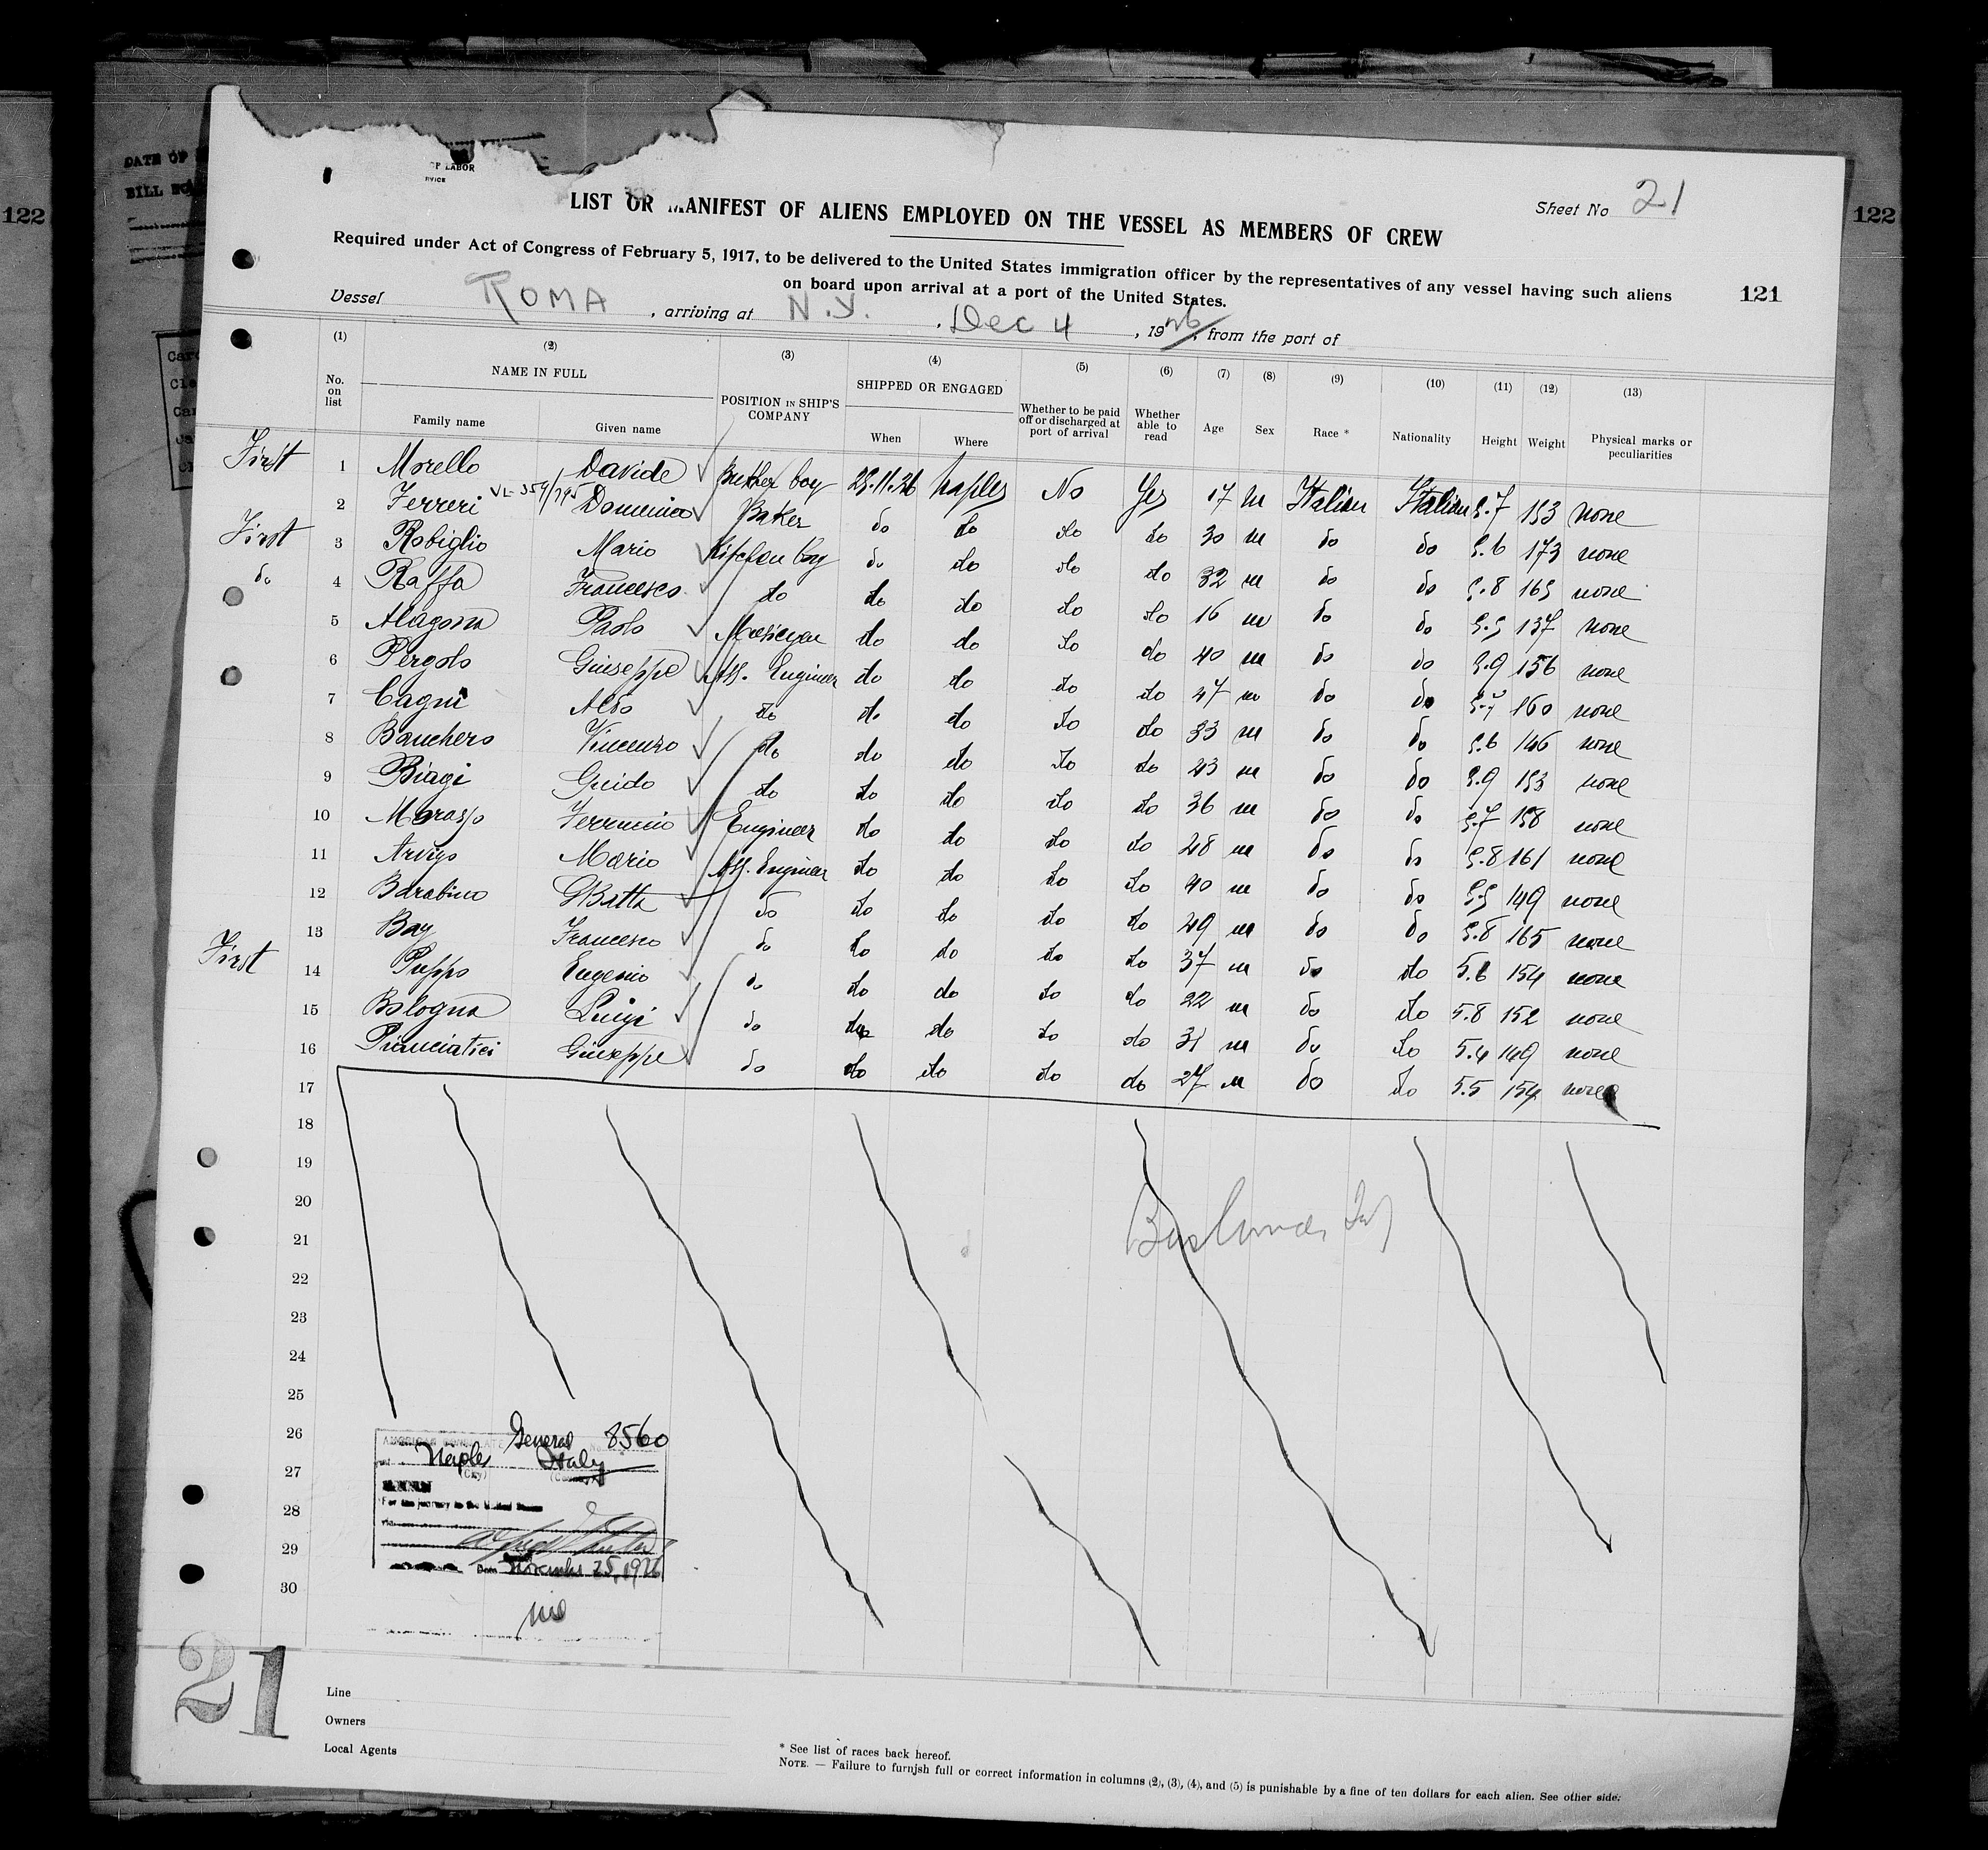 122
DATE OF
BILL NO
OF LABOR
RVICE
LIST OR MANIFEST OF ALIENS EMPLOYED ON THE VESSEL AS MEMBERS OF CREW
Sheet No 21
122
Required under Act of Congress of February 5, 1917, to be delivered to the United States immigration officer by the representatives of any vessel having such aliens
on board upon arrival at a port of the United States.
121
Vessel ROMA, arriving at N.Y., Dec 4, 1926, from the port of
(1) (2) (3) (4) (5) (6) (7) (8) (9) (10) (11) (12) (13)
No. on list NAME IN FULL Family name Given name POSITION IN SHIP'S COMPANY SHIPPED OR ENGAGED When Where Whether to be paid off or discharged at port of arrival Whether able to read Age Sex Race * Nationality Height Weight Physical marks or peculiarities
First 1 Morello Davide Butker boy 29.11.26 Naples No Yes 17 m Italian Italian 5.7 153 none
2 Ferreri VL-359/795 Domenico Baker do do do do 30 m do do 5.6 173 none
First 3 Robiglio Mario Kitchen boy do do do do 32 m do do 5.8 165 none
do 4 Raffa Francesco do do do do do 16 m do do 5.5 137 none
5 Alagona Paolo do do do do 40 m do do 5.9 156 none
6 Pergolo Giuseppe Ass. Engineer do do do do 47 m do do 5.7 160 none
7 Cagni Aldo do do do do do 33 m do do 5.6 146 none
8 Banchero Vincenzo do do do do do 43 m do do 5.9 153 none
9 Biagi Guido do do do do do 36 m do do 5.7 158 none
10 Marasso Ferruccio Engineer do do do do 28 m do do 5.8 161 none
11 Arvigo Mario Ass. Engineer do do do do 40 m do do 5.5 149 none
12 Barabino GBatta do do do do do 49 m do do 5.8 165 none
13 Bay Francesco do do do do do 37 m do do 5.6 154 none
First 14 Puppo Eugenio do do do do do 22 m do do 5.8 152 none
15 Bologna Luigi do do do do do 31 m do do 5.4 149 none
16 Pianciatici Giuseppe do do do do do 27 m do do 5.5 154 none
17
18
19
20
21
22
23
24
25
26
27
28
29
30
General 8560
AMERICAN CONSULATE
Naples Italy
(City) (Country)
For the journey to the United States
Date November 25, 1926
21
Line
Owners
Local Agents
* See list of races back hereof.
NOTE. — Failure to furnjsh full or correct information in columns (2), (3), (4), and (5) is punishable by a fine of ten dollars for each alien. See other side.